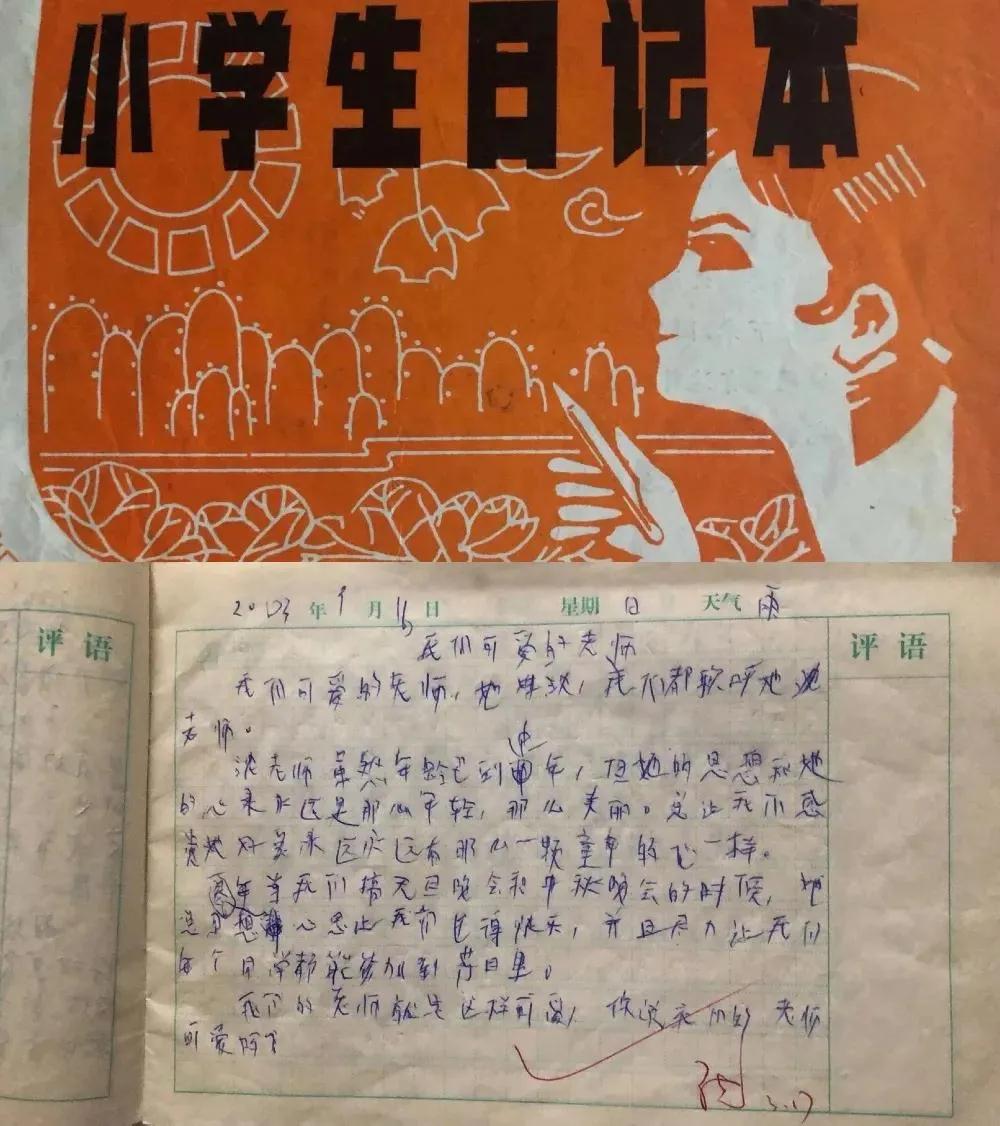 小学生日记本
2003年9月16日 星期日 天气雨
评语
评语
我们可爱的老师
我们可爱的老师,她姓沈,我们都称呼她沈
老师。
沈老师虽然年龄已到中年,但她的思想和她
的心永远是那么年轻,那么美丽。总让我们感
觉她好象永远永远有那么一颗童年的心一样。
当我们搞元旦晚会和中秋晚会的时候,她
总想心思让我们包得快乐,并且尽力让我们
每个同学都能参加到节目里。
我们的老师就是这样可爱,你说我们的老师
可爱吗?